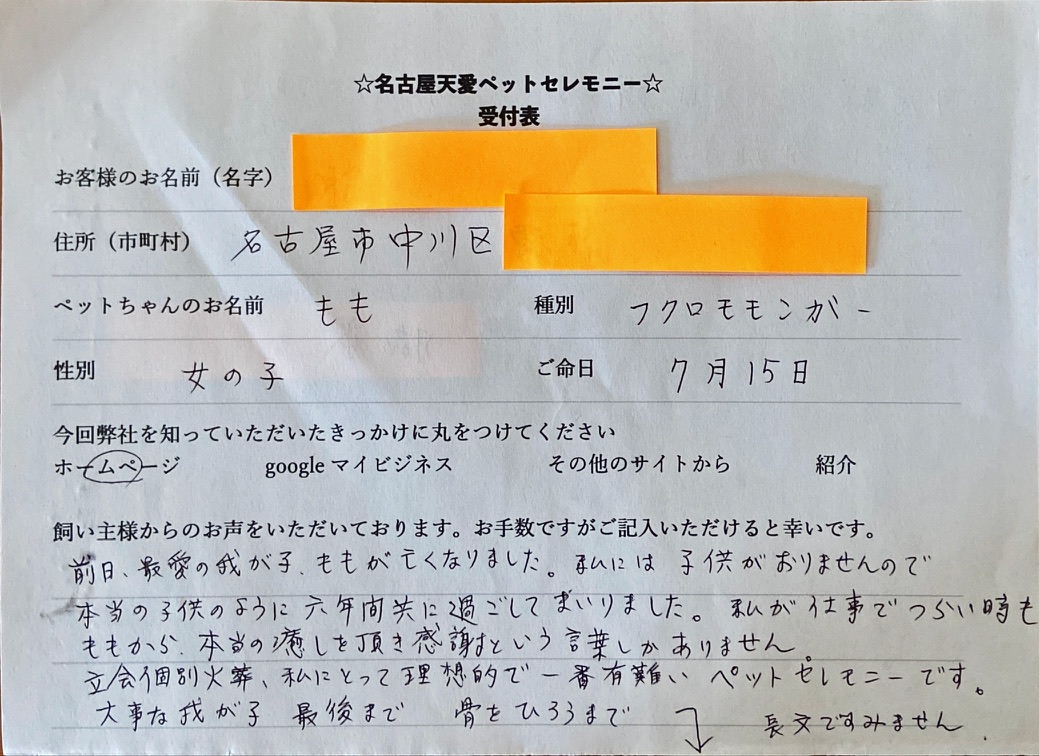 ☆名古屋天愛ペットセレモニー☆
受付表
お客様のお名前（名字）
住所（市町村） 名古屋市中川区
ペットちゃんのお名前 もも 種別 フクロモモンガー
性別 女の子 ご命日 7月15日
今回弊社を知っていただいたきっかけに丸をつけてください
ホームページ google マイビジネス その他のサイトから 紹介
飼い主様からのお声をいただいております。お手数ですがご記入いただけると幸いです。
前日、最愛の我が子、ももが亡くなりました。私には子供がおりませんので
本当の子供のように六年間共に過ごしてまいりました。私が仕事でつらい時も
ももから、本当の癒しを頂き感謝という言葉しかありません。
立会個別火葬、私にとって理想的で一番有難いペットセレモニーです。
大事な我が子 最後まで 骨をひろうまで 長文ですみません.